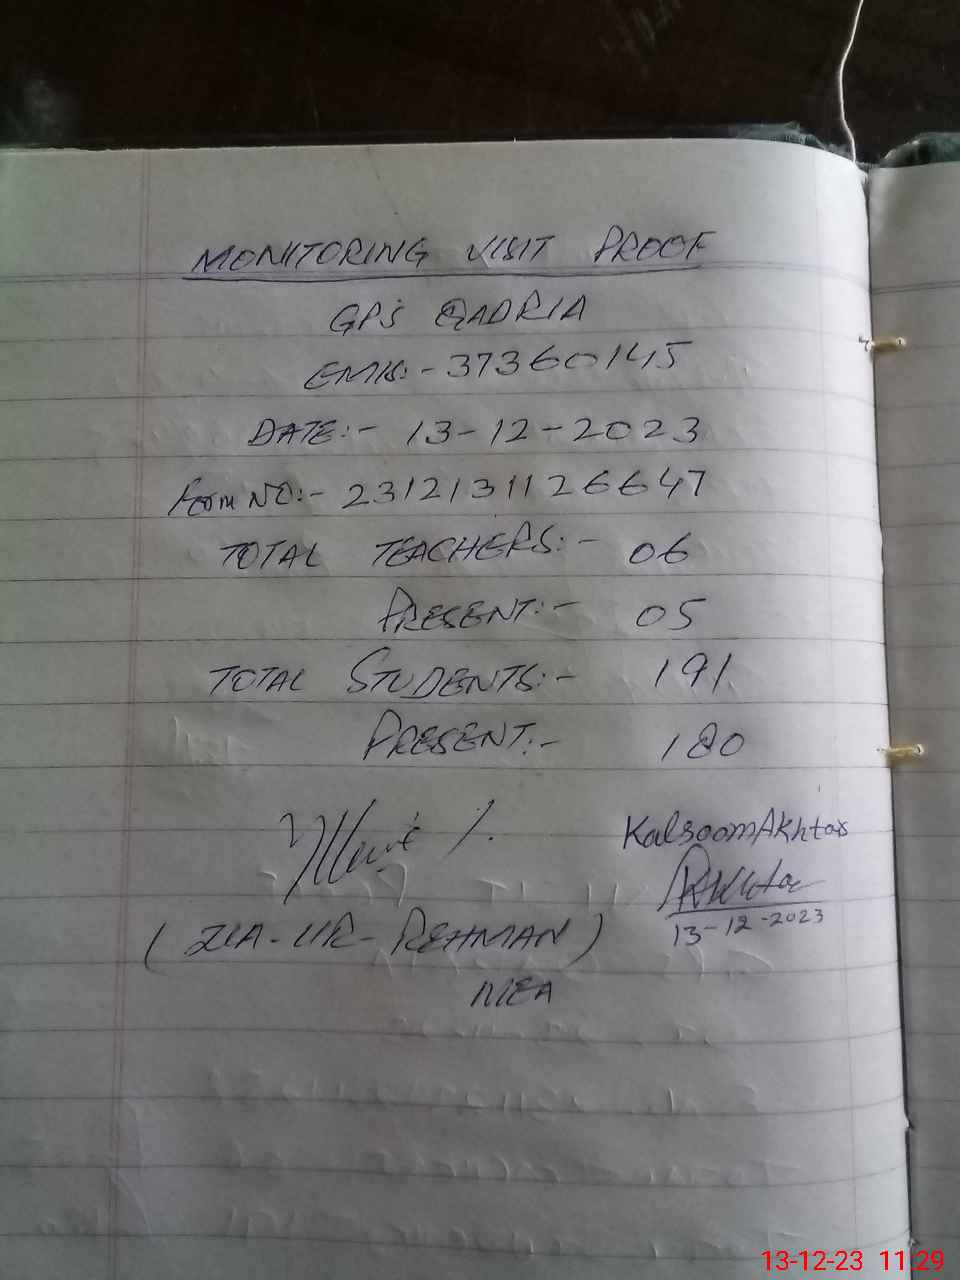 MONITORING VISIT PROOF
GPS QADRIA
EMIS:- 37360145
DATE:- 13-12-2023
Form NO:- 2312131126647
TOTAL TEACHERS:- 06
PRESENT:- 05
TOTAL STUDENTS:- 191
PRESENT:- 180
Kalsoom Akhtar
Akhtar
13-12-2023
(ZIA-UR-REHMAN)
MEA
13-12-23 11:29